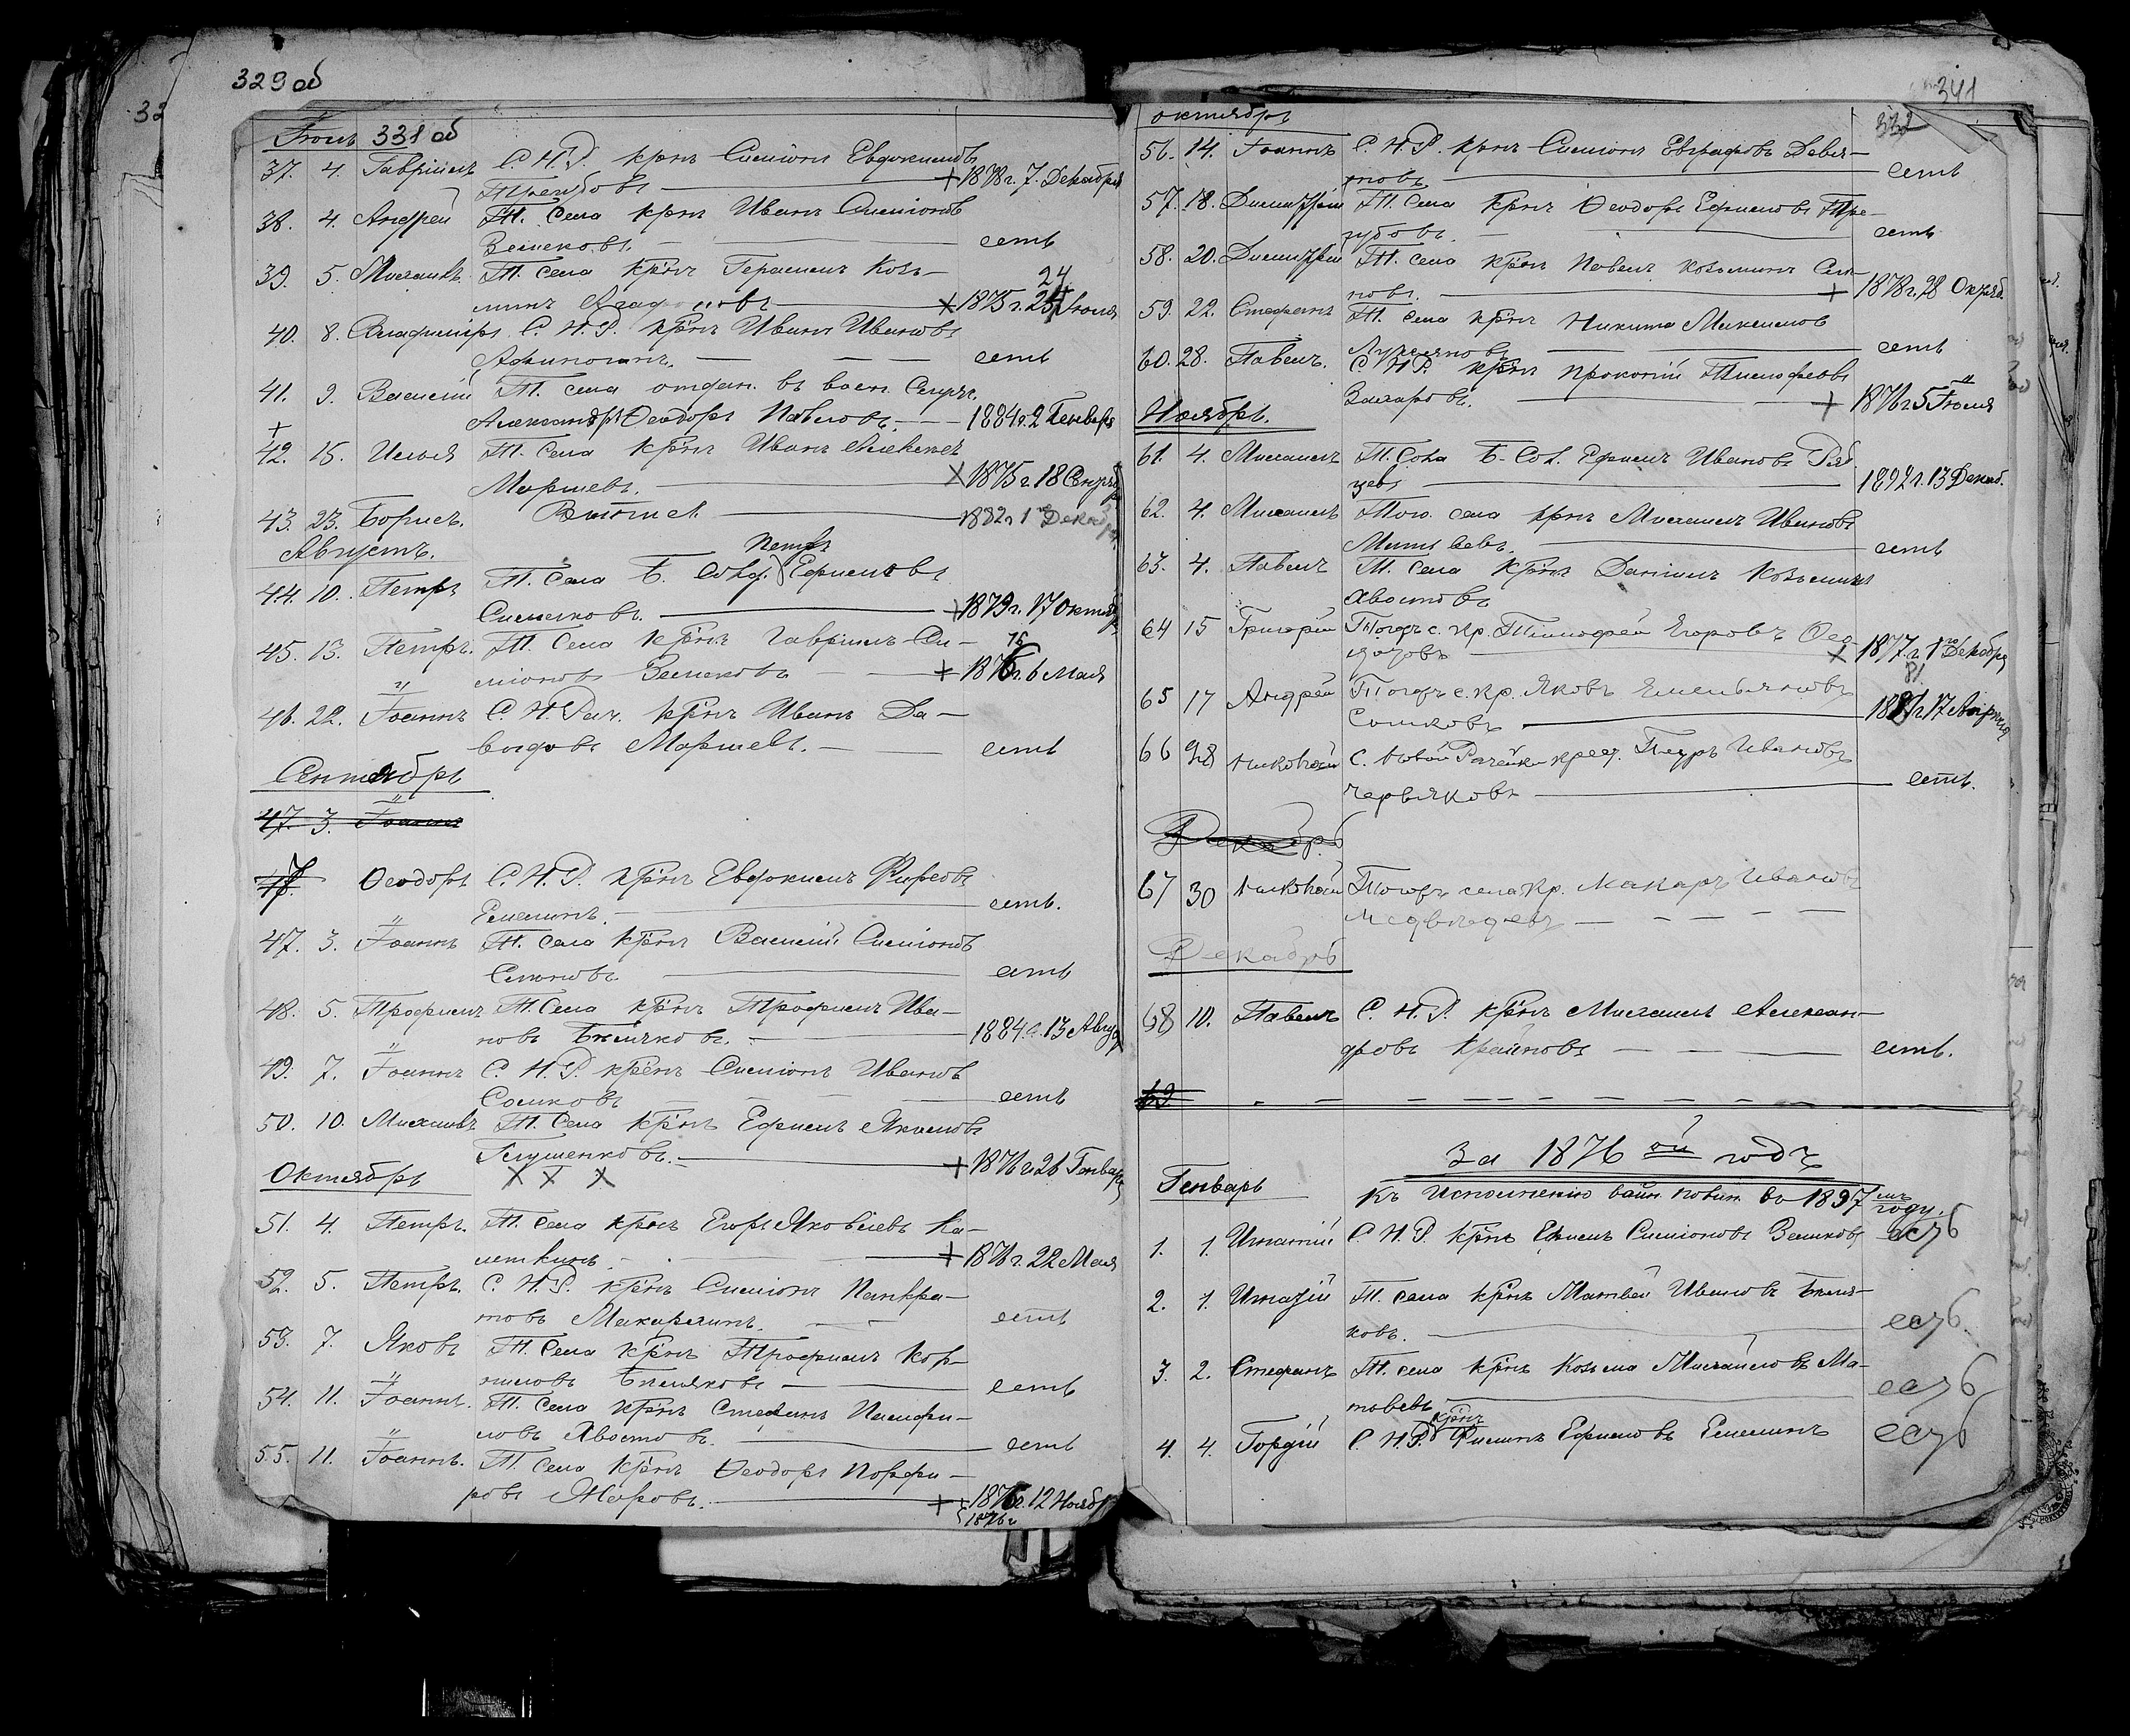 329 об
Іюль 331 об
37. 4. Гавріилъ С. Н. Р. крнъ Симіонъ Евдокимовъ
Трегубовъ + 1878 г. 7. Декабря
38. 4. Андрей Т. Села крнъ Иванъ Симіоновъ
Земсковъ. есть
39. 5. Михаилъ Т. Села крнъ Герасимъ Козь-
минъ Агафоновъ 24 + 1875 г. 25 Іюля
40. 8. Владиміръ С. Н. Р. крнъ Иванъ Ивановъ
есть
41. 9. Василій Т. села въ воен.
Александръ Ѳеодоръ Павловъ. 1884 г. 2 Генваря
+
42. 15. Илья Т. Села крнъ Иванъ Алексеев
Моршевъ. + 1875 г. 18 Сентяб
43. 23. Борисъ. 1882 г. 1 Декаб
Августъ.
Петръ
44. 10. Петръ Т. Села Б. Солд. Ефимовъ
+ 1879 г. 17 Октяб
45. 13. Петръ. Т. Села крнъ Гавріилъ Си-
міоновъ Земсковъ 76 + 1876 г. 6 Мая
46. 22. Іоаннъ С. Н. Рач. крнъ Иванъ Да-
выдовъ Моршевъ. есть
Сентябрь
47. 3. Іоаннъ
47. Ѳеодоръ С. Н. Р. крнъ Евдокимъ Фирсовъ
Емелинъ. есть.
47. 3. Іоаннъ Т. Села крнъ Василій Симіоновъ
Семновъ. есть
48. 5. Трофимъ Т. Села крнъ Трофимъ Ива-
новъ Беляковъ. 1884. г. 13 Авгус
49. 7. Іоаннъ С. Н. Р. крнъ Симіонъ Ивановъ
Сомковъ есть
50. 10. Михаилъ Т. Села крнъ Ефимъ Якимовъ
Глушенковъ. + 1876 г. 26 Генваря
Октябрь Х Х Х
51. 4. Петръ. Т. Села крнъ Егоръ Яковлевъ Ка-
леткинъ. + 1876 г. 22 Мая
52. 5. Петръ. С. Н. Р. крнъ Симіонъ Панкра-
товъ Макаркинъ. есть
53. 7. Яковъ Т. Села крнъ Трофимъ Кор-
ниловъ Беляковъ есть
54. 11. Іоаннъ. Т. Села крнъ Стефанъ Памфи-
ловъ Хвостовъ. есть
55. 11. Іоаннъ. Т. Села крнъ Ѳеодоръ Порфи-
ровъ Жаровъ. + 1876 г. 12 Нояб
1876 г
341
332
октябрь
56. 14. Іоаннъ С. Н. Р. крнъ Симіонъ Евграфовъ Девя-
товъ есть
57. 18. Димитрій Т. Села крнъ Ѳеодоръ Ефимовъ Тре-
губовъ. есть
58. 20. Димитрій Т. Села крнъ Павелъ Козьминъ Сем-
новъ. + 1878 г. 28 Октяб.
59. 22. Стефанъ Т. Села крнъ Никита Максимов
Лукьяновъ есть
60. 28. Павелъ. С. Н. Р. крнъ Прокопій Тимофеевъ
Захаровъ. + 1876 г 5 Іюля
Ноябрь.
61. 4. Михаилъ Т. Села Б. Сол. Ефимъ Ивановъ Ряб
цевъ 1892 г. 13 Декаб.
62. 4. Михаилъ Того. села крнъ Михаилъ Ивановъ
есть
63. 4. Павелъ Т. Села крнъ Даніилъ Козьминъ
Хвостовъ
64 15 Григорій Тогожъ с. кр. Тимофей Егоровъ
+ 1877 г. 1го Декабря
65 17 Андрей Тогожъ с. кр. Яковъ Емельяновъ
Сомковъ 81 1881 г 17 Апреля
66 28 Николай С. Новой Рачейки крест. Петръ Ивановъ
Червяковъ есть.
Декабрь
67 30 Николай Тогожъ села кр. Макаръ Ивановъ
Медвѣдевъ
Декабрь
68 10. Павелъ С. Н. Р. крнъ Михаилъ Алексан-
дровъ Крайновъ есть.
69
За 1876 ой годъ
Генварь Къ исполненію воин. повин. въ 1897 мъ году.
1. 1. Игнатій С. Н. Р. крнъ Ефимъ Симіоновъ Земсковъ есть
2. 1. Игнатій Т. села крнъ Матвей Ивановъ Беля-
ковъ. есть.
3. 2. Стефанъ Т. села крнъ Козьма Михайловъ Ма-
твевъ есть
4. 4. Гордій С. Н. Р. крнъ Филипъ Ефимовъ Емелинъ есть